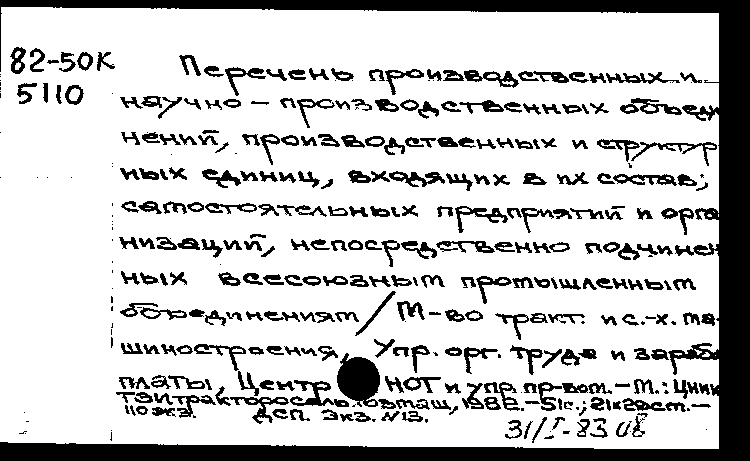 82-50К
5110
Перечень производственных и
научно-производственных объеди
нений, производственных и структур
ных единиц, входящих в их состав;
самостоятельных предприятий и орга
низаций, непосредственно подчинен
ных всесоюзным промышленным
объединениям / М-во тракт. и с.-х. ма-
шиностроения, Упр. орг. труда и зараб.
платы, Центр НОТ и упр. пр-вом. - М.: ЦНИИ
ТЭИтракторосельхозмаш, 1982. - 51с.; 21х29см. -
110экз. ДСП. Экз. №13.
31/I-83